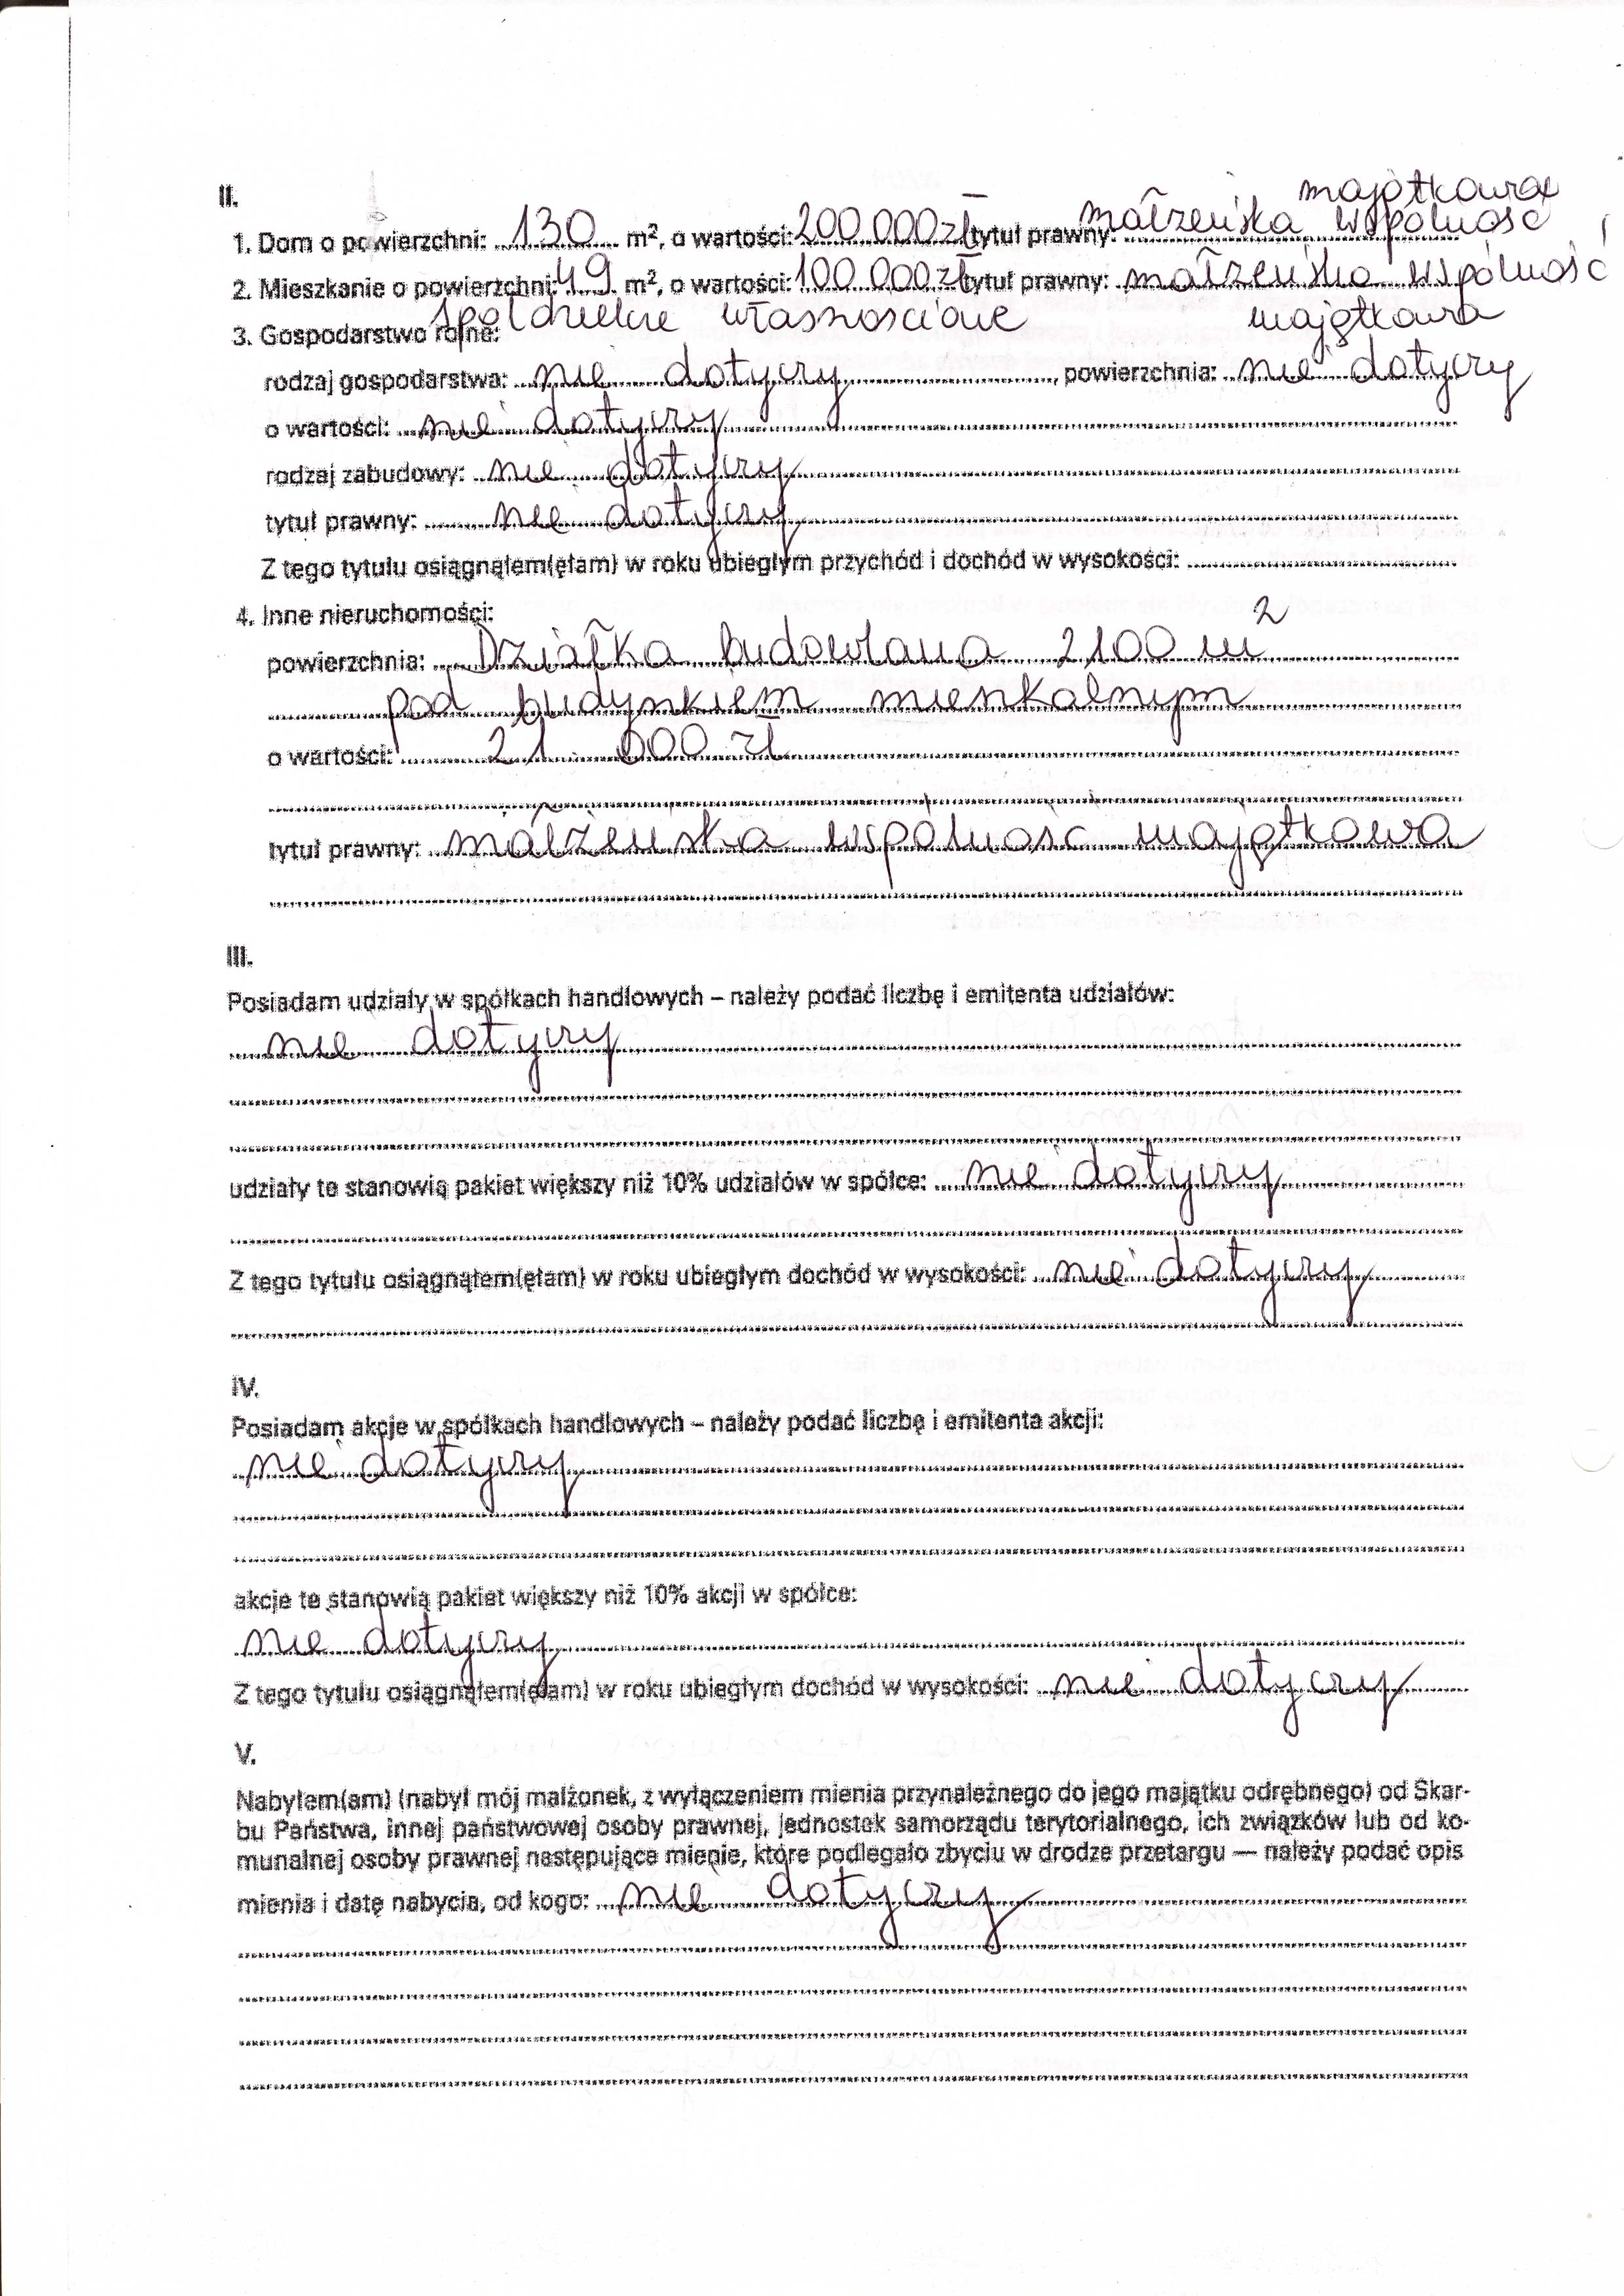 II.
majątkowa
1. Dom o powierzchni: 130 m², o wartości: 200 000 zł tytuł prawny: małżeńska wspólność
2. Mieszkanie o powierzchni: 49 m², o wartości: 100 000 zł tytuł prawny: małżeńska wspólność
spółdzielcze własnościowe majątkowa
3. Gospodarstwo rolne:
rodzaj gospodarstwa: nie dotyczy, powierzchnia: nie dotyczy
o wartości: nie dotyczy
rodzaj zabudowy: nie dotyczy
tytuł prawny: nie dotyczy
Z tego tytułu osiągnąłem(ęłam) w roku ubiegłym przychód i dochód w wysokości:
4. Inne nieruchomości:
powierzchnia: Działka budowlana 2100 m²
pod budynkiem mieszkalnym
o wartości: 21 000 zł
tytuł prawny: małżeńska wspólność majątkowa
III.
Posiadam udziały w spółkach handlowych – należy podać liczbę i emitenta udziałów:
nie dotyczy
udziały te stanowią pakiet większy niż 10% udziałów w spółce: nie dotyczy
Z tego tytułu osiągnąłem(ęłam) w roku ubiegłym dochód w wysokości: nie dotyczy
IV.
Posiadam akcje w spółkach handlowych – należy podać liczbę i emitenta akcji:
nie dotyczy
akcje te stanowią pakiet większy niż 10% akcji w spółce:
nie dotyczy
Z tego tytułu osiągnąłem(ęłam) w roku ubiegłym dochód w wysokości: nie dotyczy
V.
Nabyłem(am) (nabył mój małżonek, z wyłączeniem mienia przynależnego do jego majątku odrębnego) od Skar-
bu Państwa, innej państwowej osoby prawnej, jednostek samorządu terytorialnego, ich związków lub od ko-
munalnej osoby prawnej następujące mienie, które podlegało zbyciu w drodze przetargu — należy podać opis
mienia i datę nabycia, od kogo: nie dotyczy